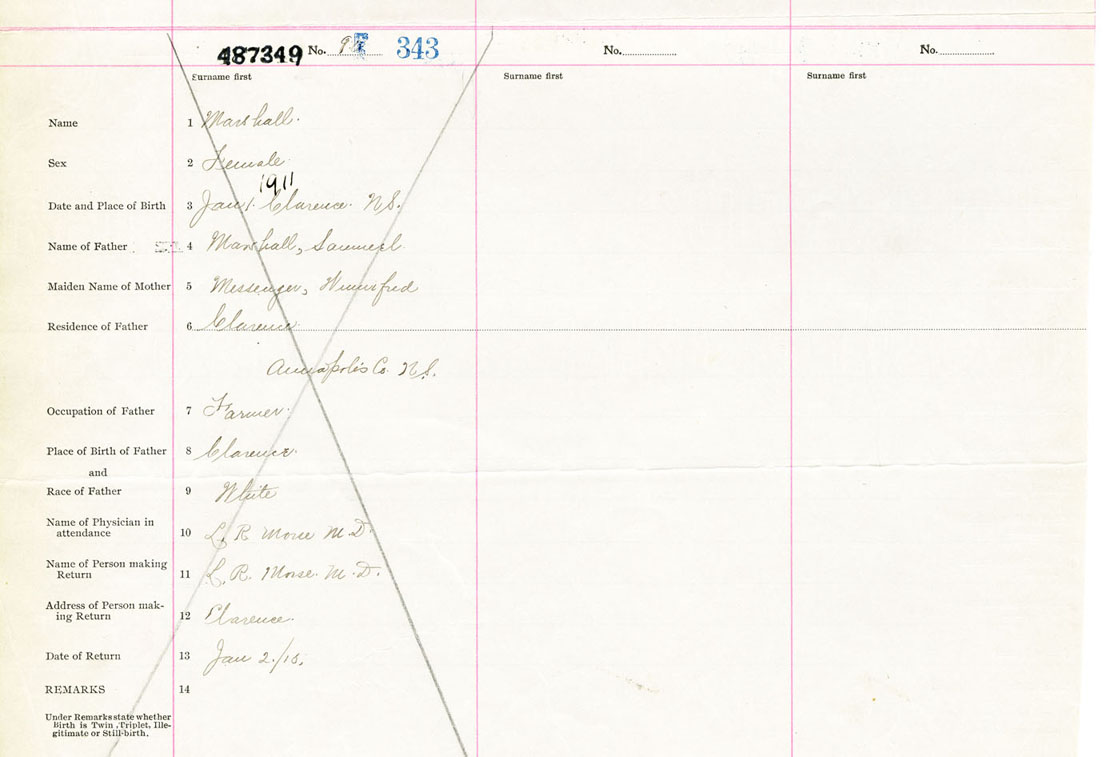 487349 No. 343 No. No.
Surname first Surname first Surname first
Name 1 Marshall.
Sex 2 Female
1911
Date and Place of Birth 3 Jan 1. Clarence. N.S.
Name of Father 4 Marshall, Samuel
Maiden Name of Mother 5 Messenger, Winnifred
Residence of Father 6 Clarence
Annapolis Co. N.S.
Occupation of Father 7 Farmer.
Place of Birth of Father 8 Clarence.
and
Race of Father 9 White
Name of Physician in
attendance 10 L. R. Morse M.D.
Name of Person making
Return 11 L. R. Morse. M.D.
Address of Person mak-
ing Return 12 Clarence.
Date of Return 13 Jan 2./
REMARKS 14
Under Remarks state whether
Birth is Twin, Triplet, Ille-
gitimate or Still-birth.